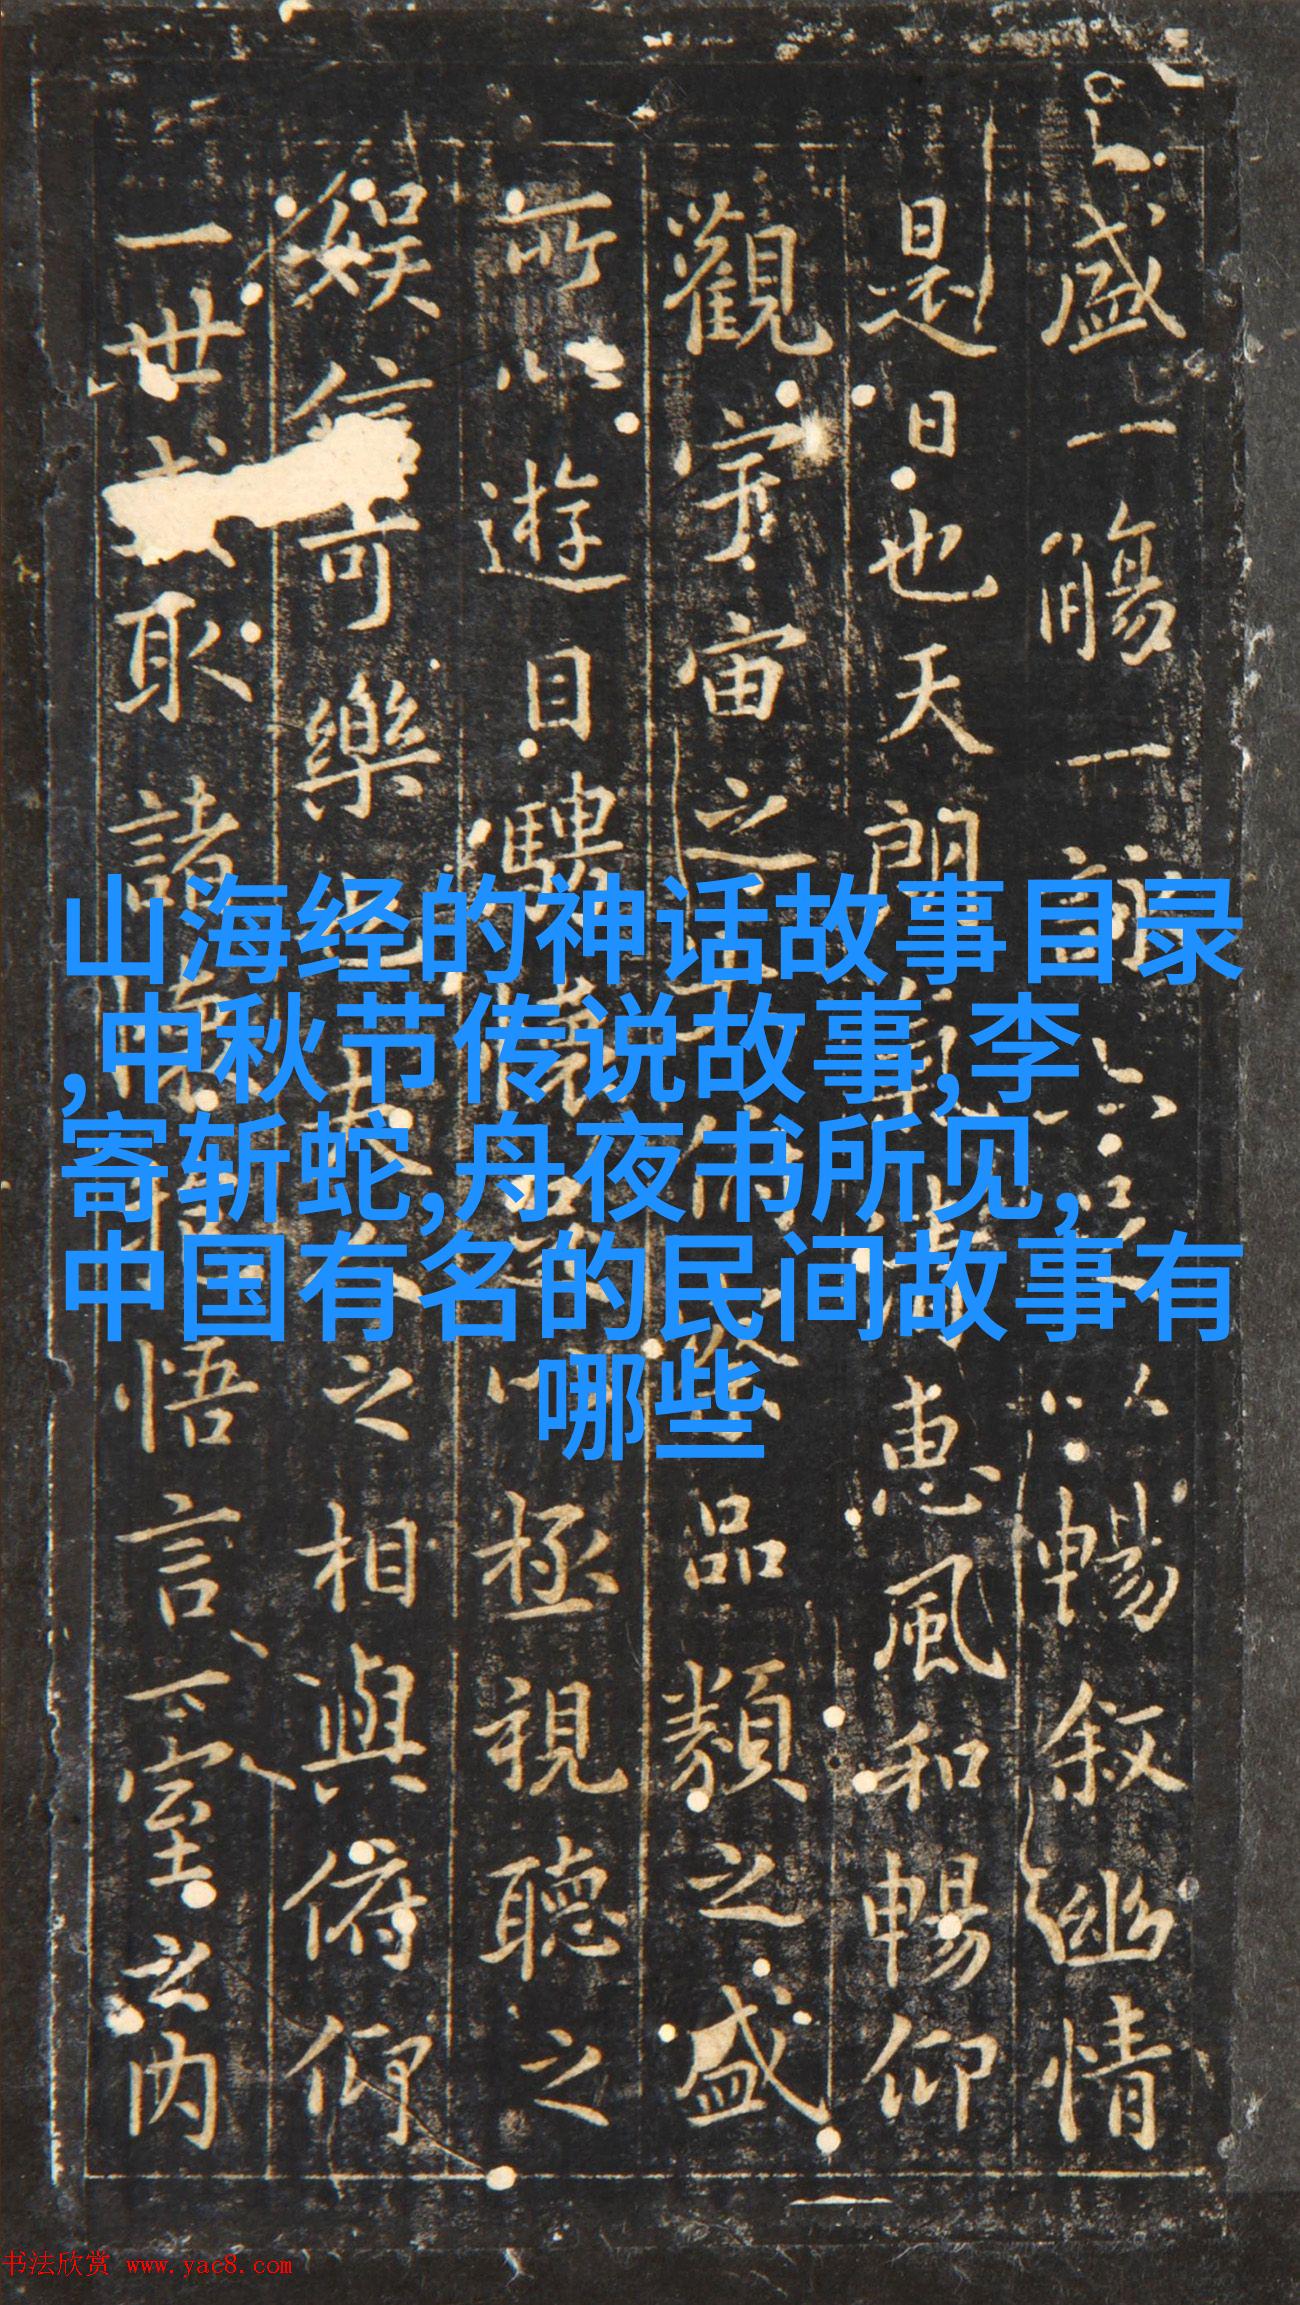 盛一觴一詠亦足以暢叙幽情
是日也天朗氣清惠風和暢仰
觀宇宙之大俯察品類之盛
所以遊目騁懷足以極視聽之
娱信可樂也夫人之相與俯仰
一世或取諸懷抱悟言一室之内
山海经的神话故事目录
,中秋节传说故事,李
寄斩蛇,舟夜书所见,
中国有名的民间故事有
哪些
书法欣赏 www.yac8.com